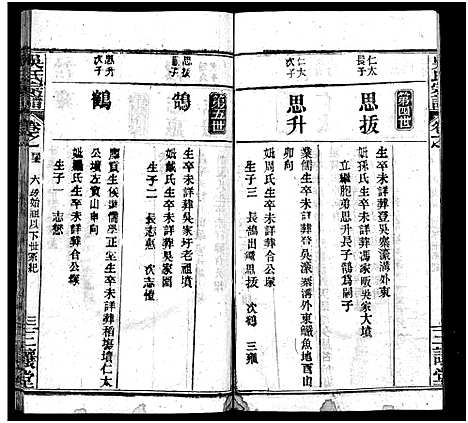 吳氏宗譜
第四世
仁太長子
思拔
生卒未詳葬登吳寨濠溝外東
妣孫氏生卒未詳葬馮家畈吳家大墳
立繼胞弟思升長子鵠爲嗣子
仁太次子
思升
業儒生卒未詳葬登吳濠溝外東鱖魚地酉山
卯向
妣周氏生卒未詳葬合公塚
生子三 長鵠出繼思拔 次鶴 三
三讓堂
第五世
思拔嗣子
鵠
生卒未詳葬吳家圩老祖墳
妣戴氏生卒未詳葬吳家園
生子二 長志惠 次志憶
思升次子
鶴
應貢生侯選儒學正堂生卒未詳葬稍塲墳仁太
公墳左寅山申向
妣羅氏生卒未詳葬合公塚
生子一 志恕
吳氏宗譜
六房始祖以下世系紀
三讓堂